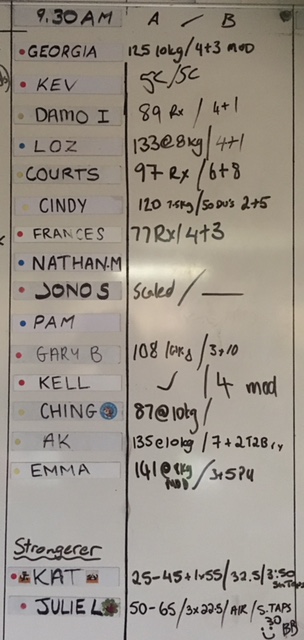 9.30AM A / B
GEORGIA 125 10kg / 4+3 MOD
KEV SC/SC
DAMO I 89 Rx / 4+1
LOZ 133@8kg / 4+1
COURTS 97 Rx / 6+8
CINDY 120 7.5kg / 50 DU's 2+5
FRANCES 77Rx / 4+3
NATHAN.M
JONO S Scaled / —
PAM
GARY B 108 / 3+10
KELL ✓ / 4 mod
CHING 87@10kg /
AK 135@10kg / 7+2T2B
EMMA 141@8kg MOD / 3+5PU
Strongerer
KAT 25-45+1x55/32.5/3:50
JULIE L 50-65/3x22.5/AIR/S.TAPS
30
BB